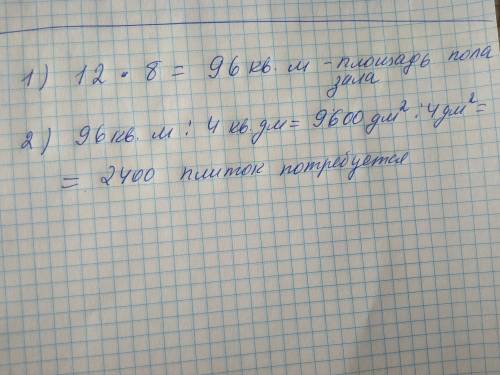 1) 12 · 8 = 96 кв. м - площадь пола
зала
2) 96 кв. м : 4 кв. дм = 9600 дм² : 4 дм² =
= 2400 плиток потребуется